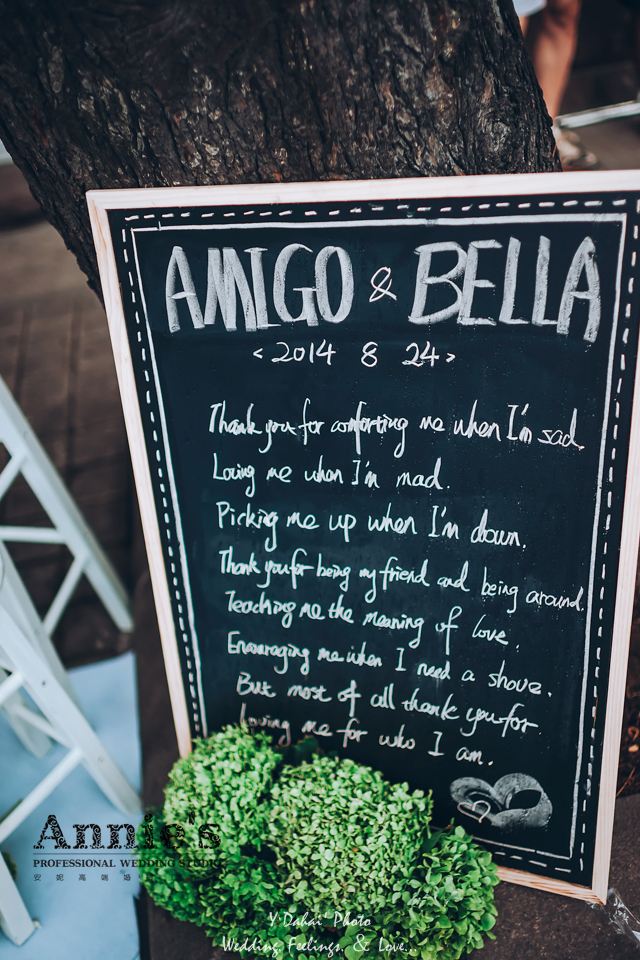 AMIGO & BELLA
<2014 8 24>
Thank you for comforting me when I'm sad.
Loving me when I'm mad.
Picking me up when I'm down.
Thank you for being my friend and being around.
Teaching me the meaning of love.
Encouraging me when I need a shove.
But most of all thank you for.
Loving me for who I am.
Annie's
PROFESSIONAL WEDDING STUDIO
安妮高端婚
Y·Dahai Photo
Wedding, Feelings, & Love...